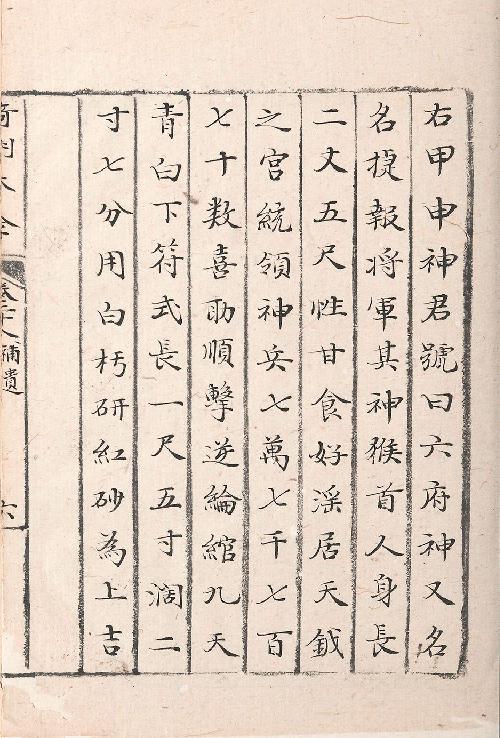 右甲申神君號曰六府神又名
名捷報将軍其神猴首人身長
二丈五尺性甘食好淫居天鉞
之宮統領神兵七萬七千七百
七十数喜助順擊逆綸綰九天
青白下符式長一尺五寸濶二
寸七分用白朽研紅砂為上吉
補遺
六